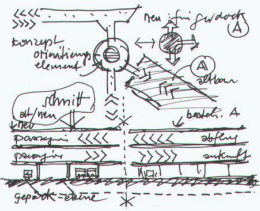 A
konzept
orientierungs
element
A
altbau
schnitt
alt/neu
neu
besteh. A
passagier
abflug
passagier
ankunft
gepäck-ebene